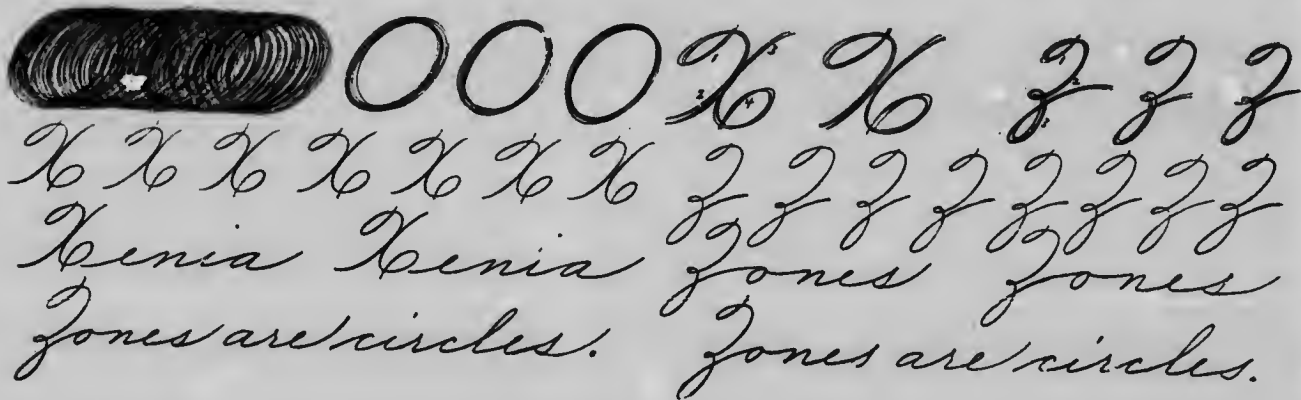 O O O X X Z Z Z
X X X X X X X Z Z Z Z Z Z Z Z
Xenia Xenia Zones Zones
Zones are circles. Zones are circles.